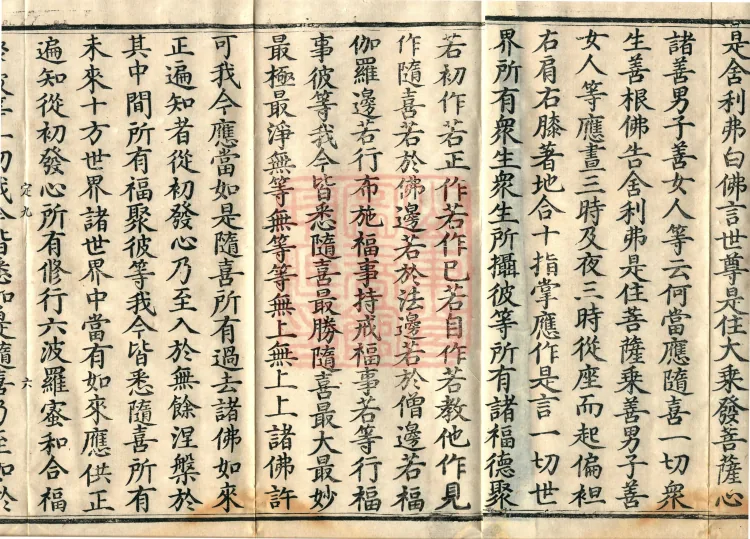 是舍利弗白佛言世尊是住大乘發菩薩心
諸善男子善女人等云何當應隨喜一切衆
生善根佛告舍利弗是住菩薩乘善男子善
女人等應晝三時及夜三時從座而起偏袒
右肩右膝著地合十指掌應作是言一切世
界所有衆生衆生所攝彼等所有諸福德聚
若初作若正作若作已若自作若教他作見
作隨喜若於佛邊若於法邊若於僧邊若福
伽羅邊若行布施福事持戒福事若等行福
事彼等我今皆悉隨喜最勝隨喜最大最妙
最極最淨無等無等等無上無上上諸佛許
可我今應當如是隨喜所有過去諸佛如來
正遍知者從初發心乃至入於無餘涅槃於
其中間所有福聚彼等我今皆悉隨喜所有
未來十方世界諸世界中當有如來應供正
遍知從初發心所有修行六波羅蜜和合福
定九 六
一切我今皆悉如是隨喜乃至如於